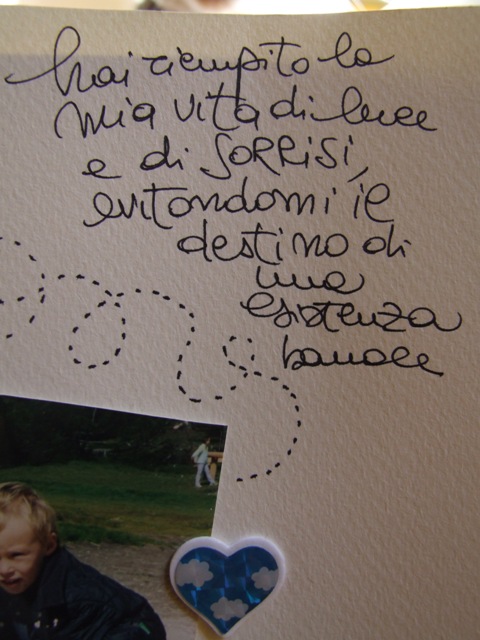 hai riempito la
mia vita di luce
e di SORRISI,
evitandomi il
destino di
una
esistenza
banale